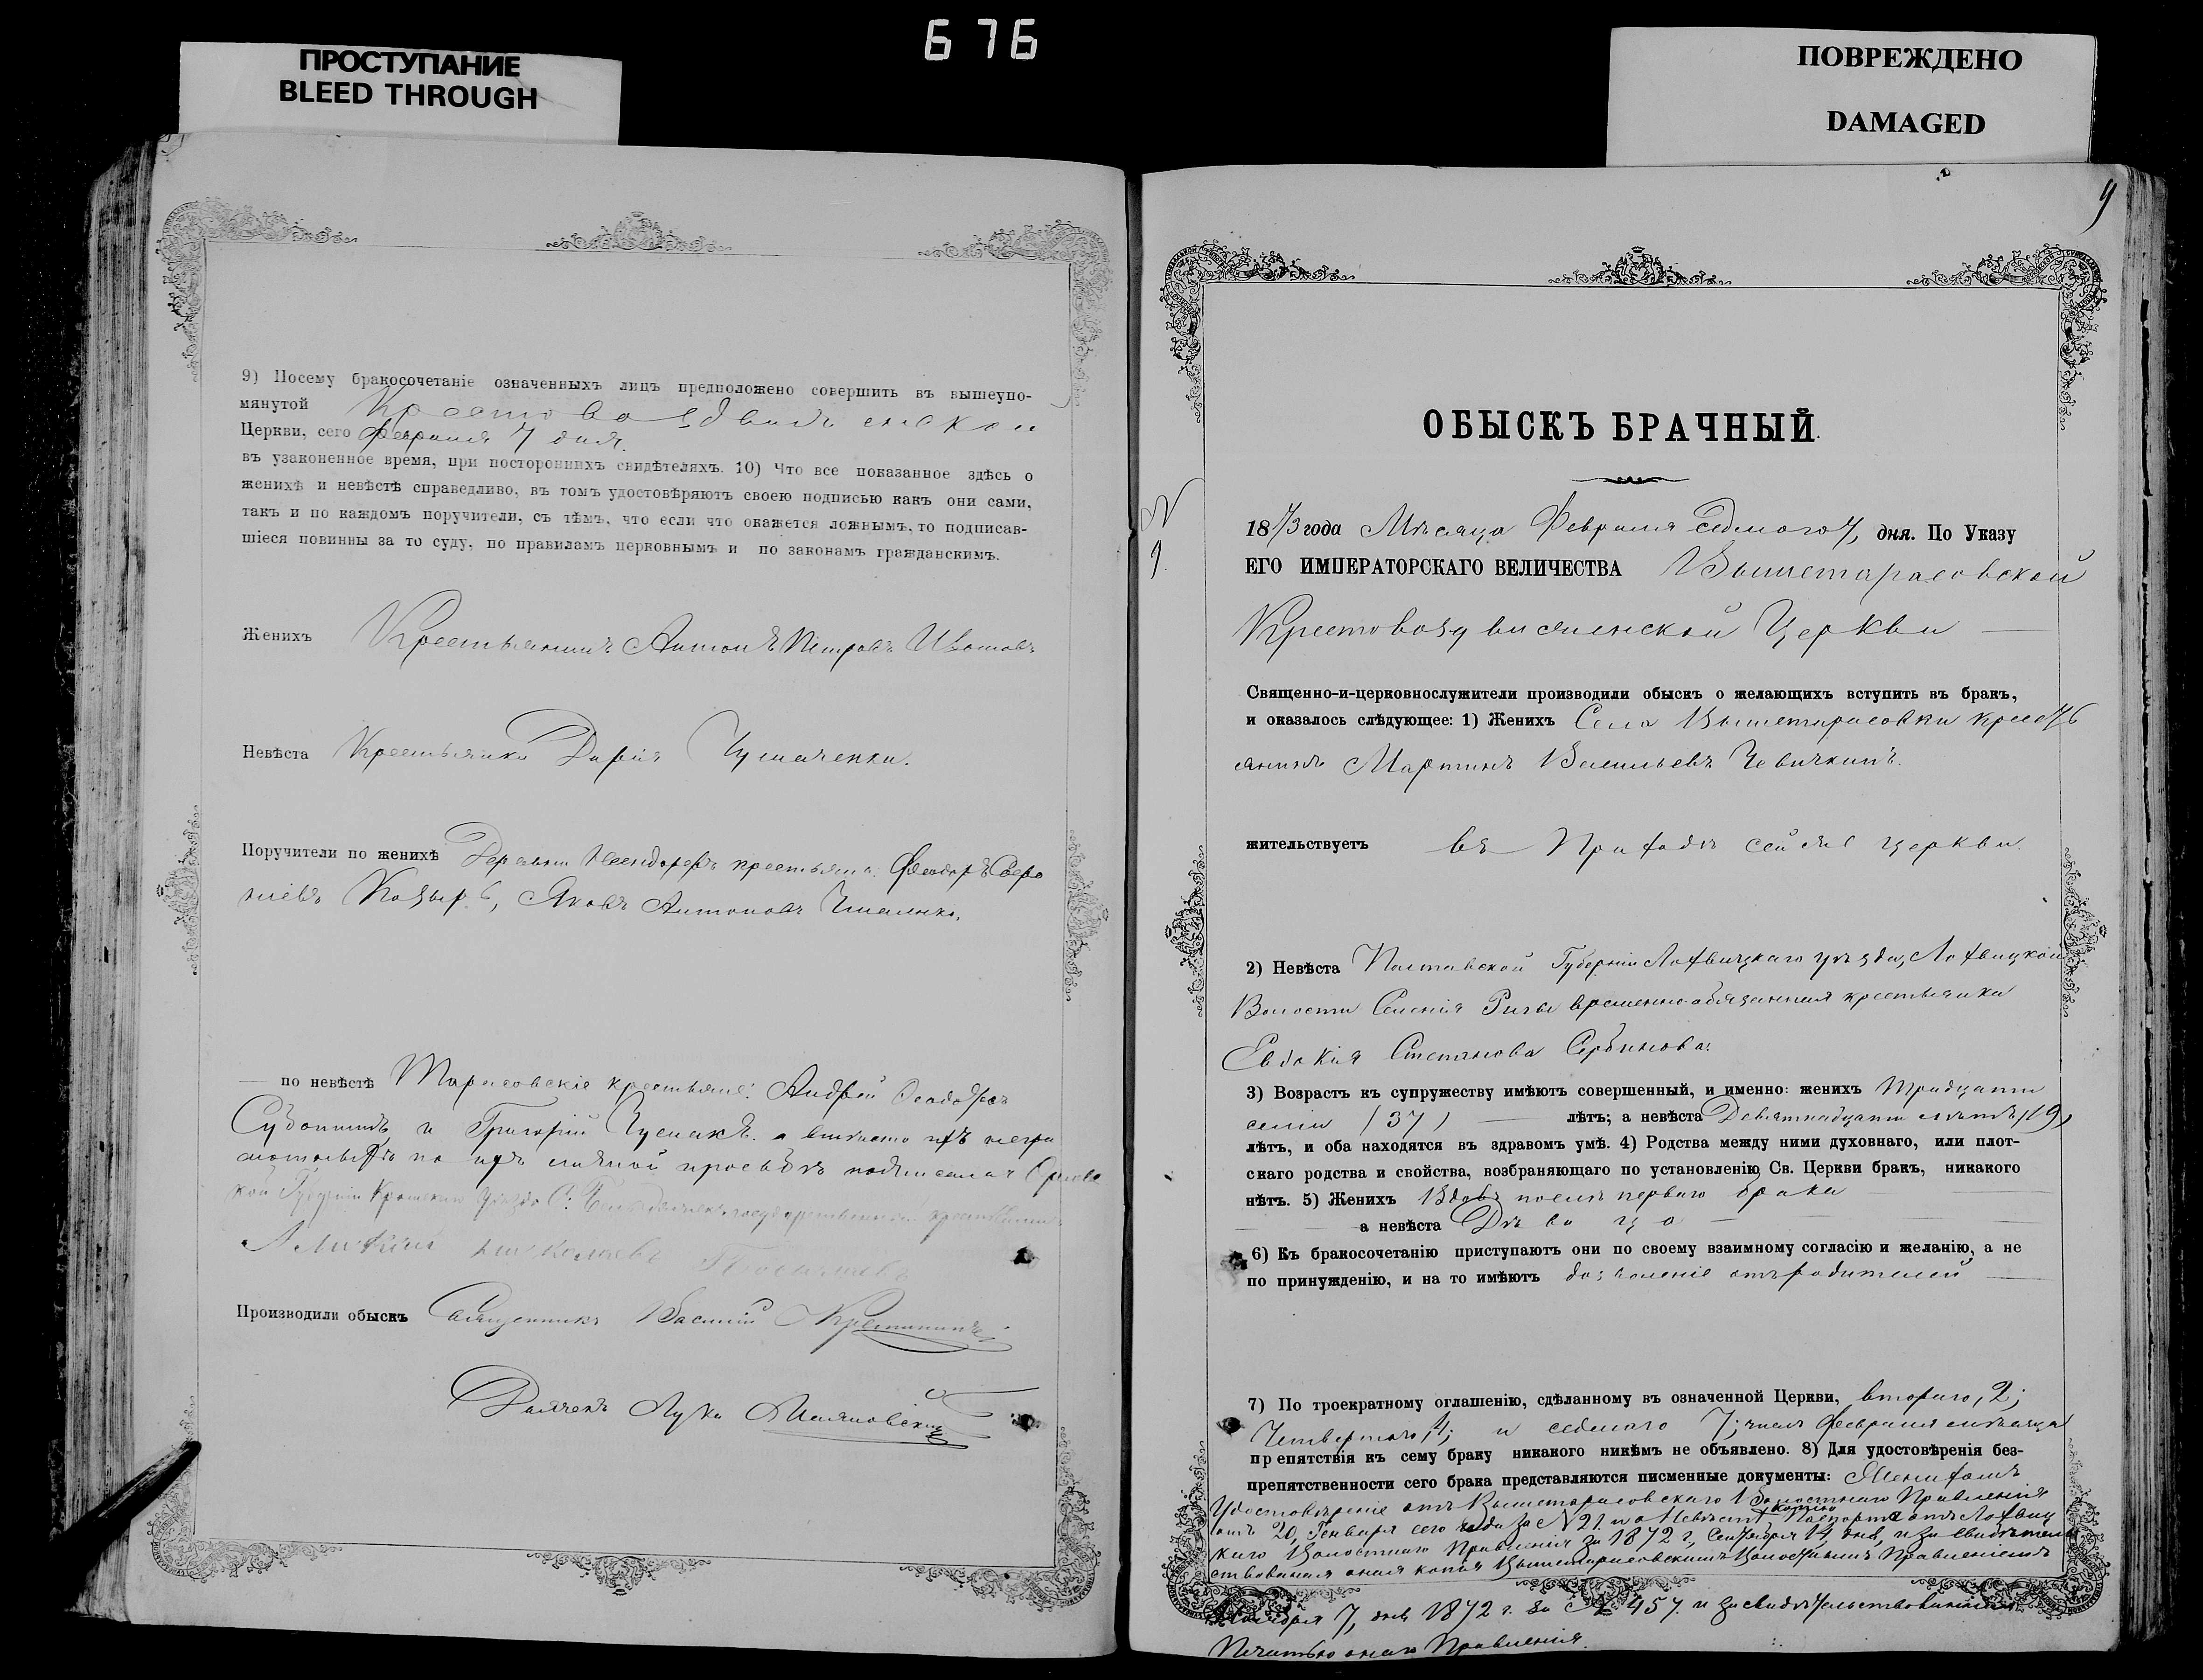 676
ПРОСТУПАНИЕ
BLEED THROUGH
ПОВРЕЖДЕНО
DAMAGED
9) Посему бракосочетаніе означенныхъ лицъ предположено совершить въ вышеупо-
мянутой Крестовоздвиженской
Церкви, сего февраля 7 дня
въ узаконенное время, при постороннихъ свидѣтеляхъ. 10) Что все показанное здѣсь о
женихѣ и невѣстѣ справедливо, въ томъ удостовѣряютъ своею подписью какъ они сами,
такъ и по каждомъ поручители, съ тѣмъ, что если что окажется ложнымъ, то подписав-
шіеся повинны за то суду, по правиламъ церковнымъ и по законамъ гражданскимъ.
Женихъ Крестьянинъ Антонъ Петровъ
Невѣста Крестьянка Дарія Чумаченки.
Поручители по женихѣ Деревни крестьяне: Феодоръ
Козырь, Яковъ Антоновъ
по невѣстѣ Тарасовскіе крестьяне: Андрей
и Григорій Чумакъ. а вмѣсто ихъ негра
мотныхъ по ихъ личной просьбѣ подписался Орловс
кой Губерніи Кромскаго уѣзда государственный крестьянинъ
Производили обыскъ Священникъ Василій
Дьячекъ Лука
9
ОБЫСКЪ БРАЧНЫЙ.
N
9.
1873 года Мѣсяца Февраля седьмого 7, дня. По Указу
ЕГО ИМПЕРАТОРСКАГО ВЕЛИЧЕСТВА Вышетарасовской
Крестовоздвиженской Церкви
Священно-и-церковнослужители производили обыскъ о желающихъ вступить въ бракъ,
и оказалось слѣдующее: 1) Женихъ Села Вышетарасовки кресть
янинъ Мартинъ Васильевъ Чевичкинъ.
жительствуетъ въ Приходѣ сей же церкви.
2) Невѣста Полтавской Губерніи Лохвицкаго уѣзда, Лохвицкой
Волости Селенія временно-обязанная крестьянка
Евдокія Степанова Сербинова.
3) Возрастъ къ супружеству имѣютъ совершенный, и именно: женихъ тридцати
семи (37) лѣтъ; а невѣста Девятнадцати лѣтъ (19)
лѣтъ, и оба находятся въ здравомъ умѣ. 4) Родства между ними духовнаго, или плот-
скаго родства и свойства, возбраняющаго по установленію Св. Церкви бракъ, никакого
нѣтъ. 5) Женихъ Вдовъ послѣ перваго брака
а невѣста Дѣвица
6) Къ бракосочетанію приступаютъ они по своему взаимному согласію и желанію, а не
по принужденію, и на то имѣютъ дозволеніе отъ родителей
7) По троекратному оглашенію, сдѣланному въ означенной Церкви, втораго, 2;
Четвертаго, 4; и седьмаго 7; числъ февраля мѣсяца
препятствія къ сему браку никакого никѣмъ не объявлено. 8) Для удостовѣренія без-
препятственности сего брака представляются писменные документы: Женихомъ
Удостовѣреніе отъ Вышетарасовскаго Волостнаго Правленія
отъ 20, Генваря сего года за N 21. и о Невѣстѣ копію Паспорта отъ Лохвиц
каго Волостнаго Правленія за 1872 г, Сентября 14, дня, и за свидѣтель
ствованная оная копія Вышетарасовскимъ Волостнымъ Правленіемъ
7, дня 1872 г. за N 457. и засвидѣтельствованная
Печатью онаго Правленія.